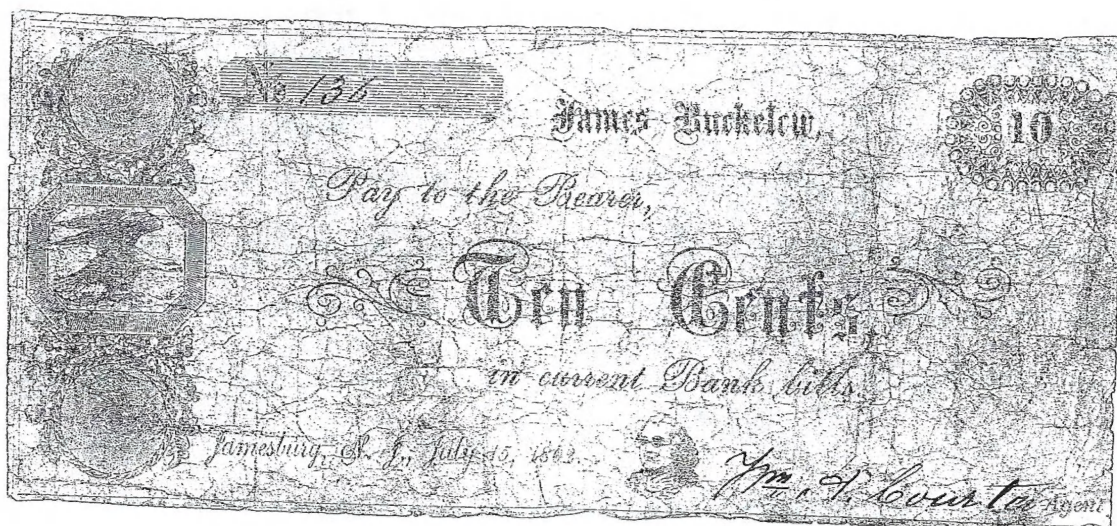 No 136
James Buckelew,
10
Pay to the Bearer,
Ten Cents,
in current Bank bills.
Jamesburg, N. J., July 15, 1862
Wm. Courter Agent